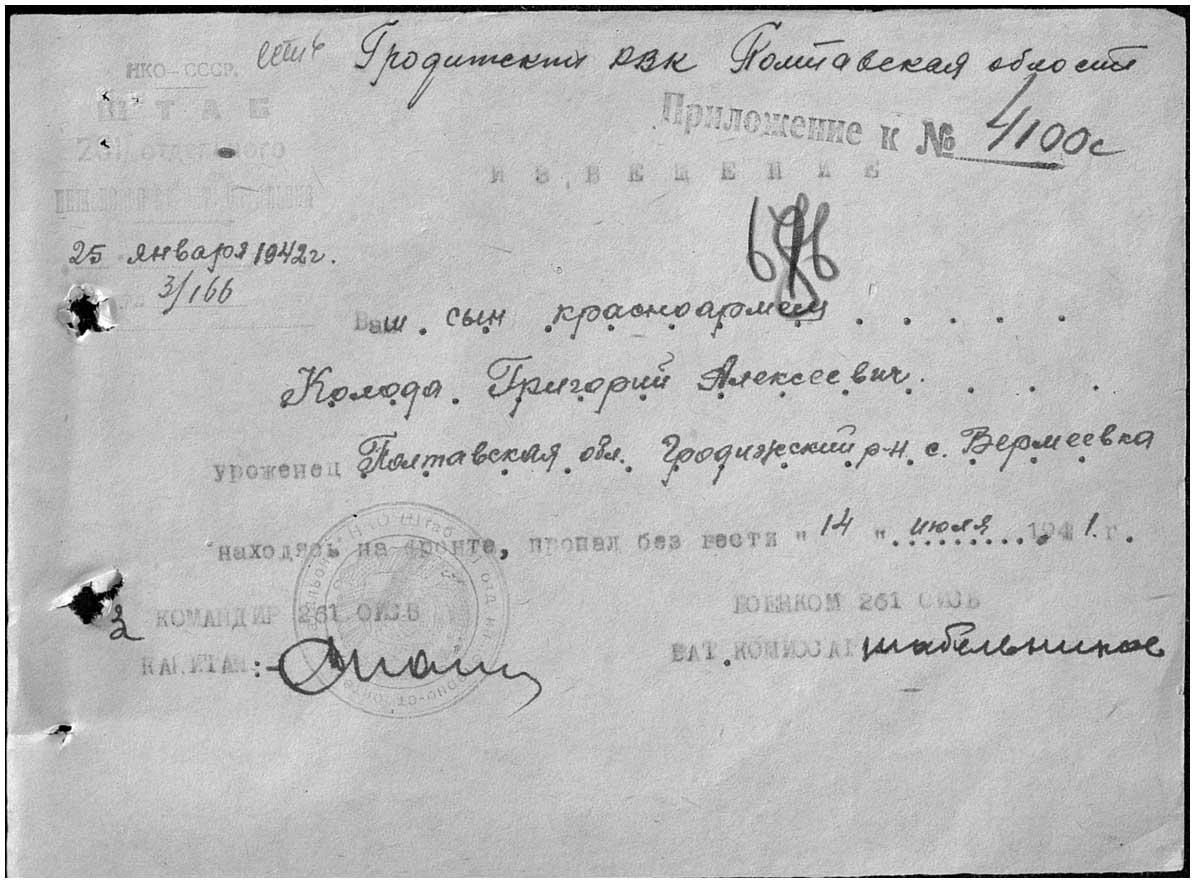 есть Градижский РВК Полтавская области
НКО-СССР.
ШТАБ
Приложение к № 4100с
261 отдельного
ИЗВЕЩЕНИЕ
25 января 1942г.
686
№ 3/166
Ваш сын красноармеец
Колода Григорий Алексеевич.
уроженец Полтавская обл. Градижский р-н с. Вермеевка
находясь на фронте, пропал без вести "14" июля 1941.г.
КОМАНДИР 261 ОПСБ ВОЕНКОМ 261 ОПСБ
КАПИТАН:- БАТ.КОМИССАР Шабельников